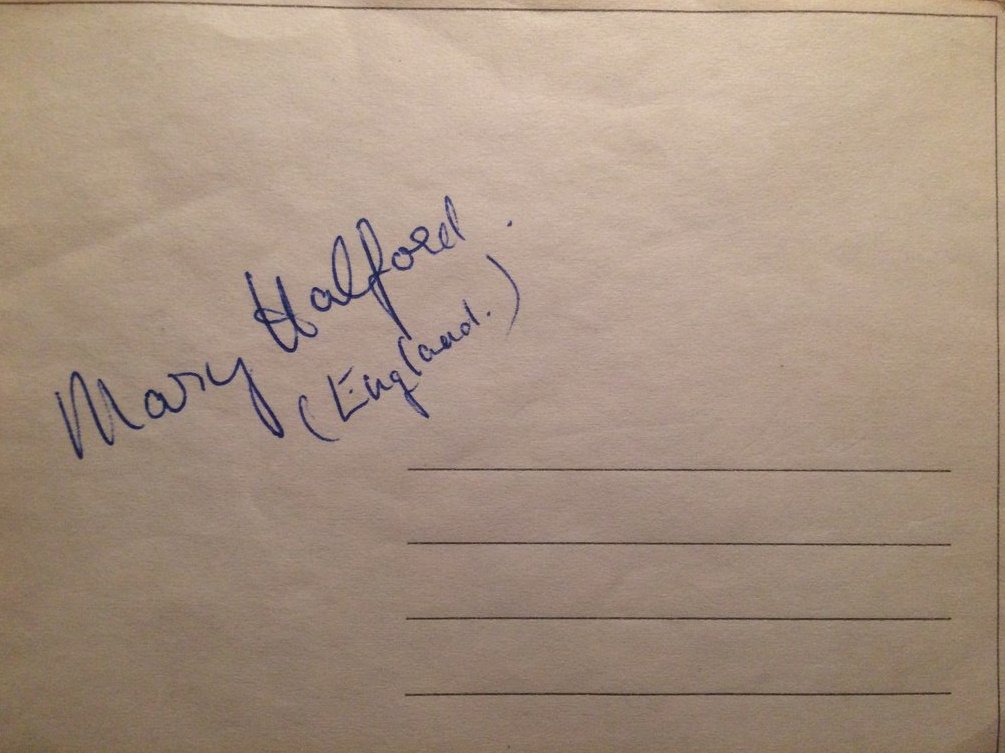 Mary Halford.
(England.)